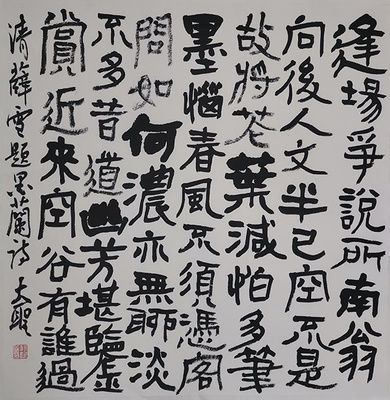 逢場爭說所南翁
向後人文半已空不是
故將花葉減怕多筆
墨惱春風不須憑閣
問如何濃亦無聊淡
不多昔道幽芳堪
賞近來空谷有誰過
清薛雪題墨蘭詩 大聖